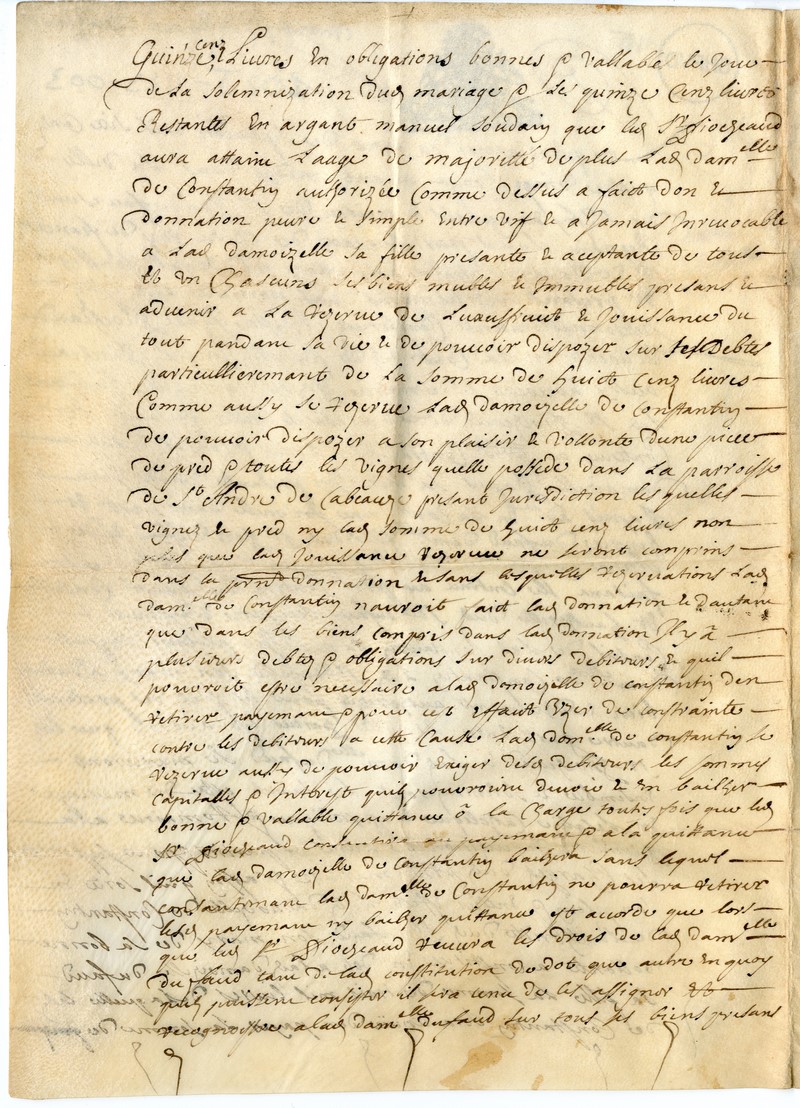 Quinze cenz Livres En obligations bonnes & vallables le Jour
de La solemnization dud mariage & Les quinze Cenz livres
Restantes En argant manuel soudain que led Sr Diozeaud
aura attaint Laage de majoritté de plus Lad damelle
de Constantin authorizée Comme dessus a faict don &
donnation pure & simple Entre vif & a Jamais Inrevocable
a Lad damoizelle sa fille presante & aceptante de tous
Et un Chascuns ses biens mubles & Immubles presans &
advenir a La rezerve de Luzuffruict & Jouissance du
tout pandant sa vie & de pouvoir dispozer sur ses Debtes
particullieremant de La somme de huict cenz livres
Comme aussy se rezerve Lad damoizelle de Constantin
de pouvoir dispozer a son plaisir & vollonté dune piece
de pred & toutes les vignes quelle possede dans La parroisse
de St André de Cabeauze presant Jurisdiction les quelles
vignes & pred ny lad somme de huict cenz livres non
plus que lad Jouissance rezervee ne seront comprins
dans la prnte donnation & sans lesquelles rezervations Lad
damelle de Constantin nauroit faict lad donnation & dautant
que dans les biens compris dans lad donnation Il y a
plusieurs debtes & obligations sur divers debiteurs & quil
pouvroit estre necessaire a lad damoizelle de constantin den
retirer payemant & pour cet Effaict Uzer de constrainte
contre les debiteurs a cette Cause Lad damelle de constantin se
rezerve aussy de pouvoir Exiger desd debiteurs les sommes
Capitalles & Interest quilz pouvroint devoir & En bailher
bonne & vallable quittance a la Charge toutes fois que led
Sr Diozeaud consantira au payemant & a la quittance
que lad damoizelle de Constantin bailhera sans lequel
constantemant lad damelle de Constantin ne pourra retirer
lesd payemant ny bailher quittance Et acordé que lors
que led Sr Diozeaud recevra les drois de lad damelle
du faud tant de lad constitution de dot que autre En quoy
quilz puissent consister il sera tenu de les assigner Et
recognoistre a lad damelle dufaud sur tous ses biens presans